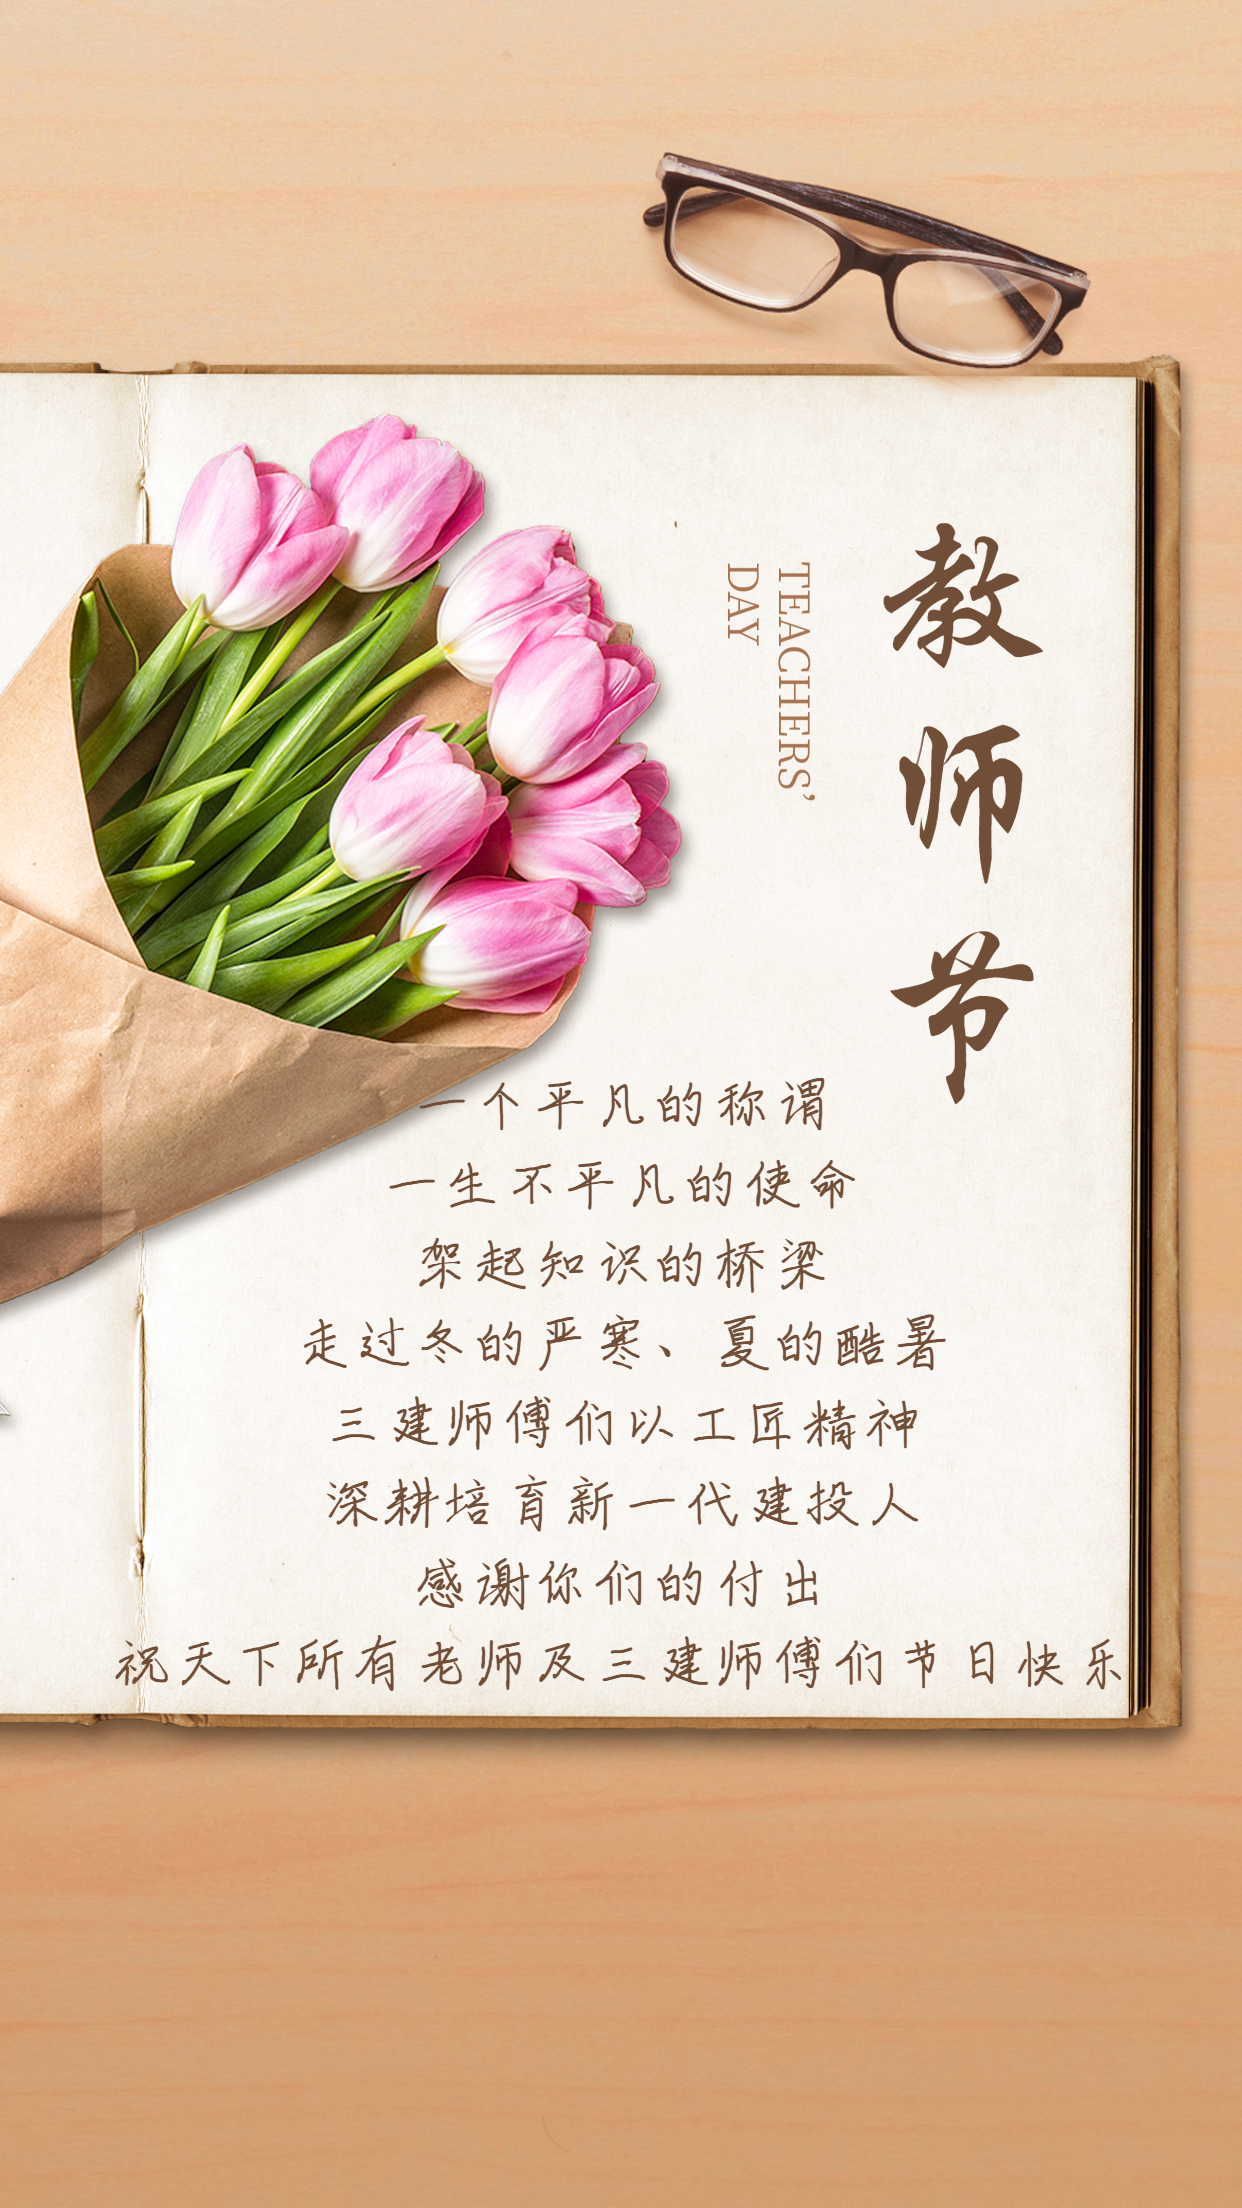 教师节
TEACHERS'
DAY
一个平凡的称谓
一生不平凡的使命
架起知识的桥梁
走过冬的严寒、夏的酷暑
三建师傅们以工匠精神
深耕培育新一代建投人
感谢你们的付出
祝天下所有老师及三建师傅们节日快乐